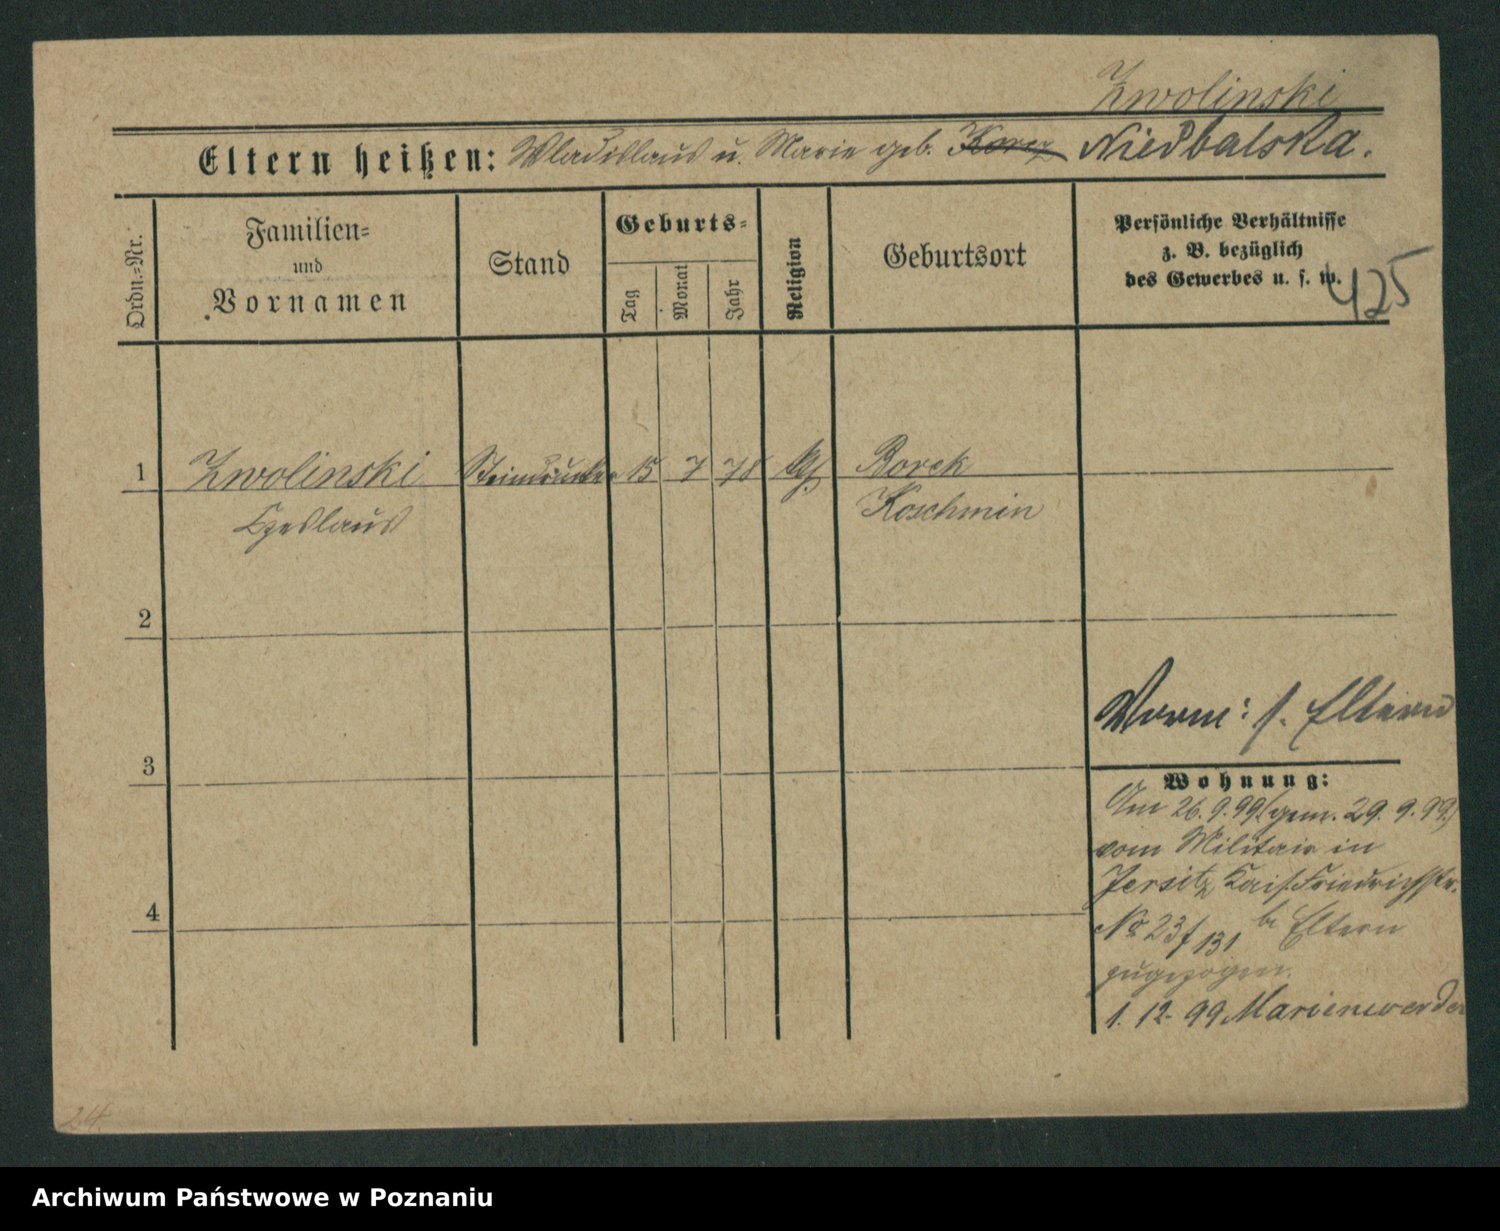 Zwolinski
Eltern heißen: Wladislaus u. Marie geb. Niedbalska.
Ordn.=Nr.
Familien=
und
Vornamen
Stand
Geburts=
Tag
Monat
Jahr
Religion
Geburtsort
Persönliche Verhältnisse
z. B. bezüglich
des Gewerbes u. s. w.
425
1 Zwolinski Steindrucker 15 7 78 Borek
Czeslaus Koschmin
2
3
4
Vorm: s. Eltern
Wohnung:
Am 26.9.99 (gem. 29.9.99)
vom Militair in
Jersitz, Kais. Friedrichstr.
No 23 f 131 bei Eltern
zugezogen.
1. 12. 99 Marienwerder
24.
Archiwum Państwowe w Poznaniu